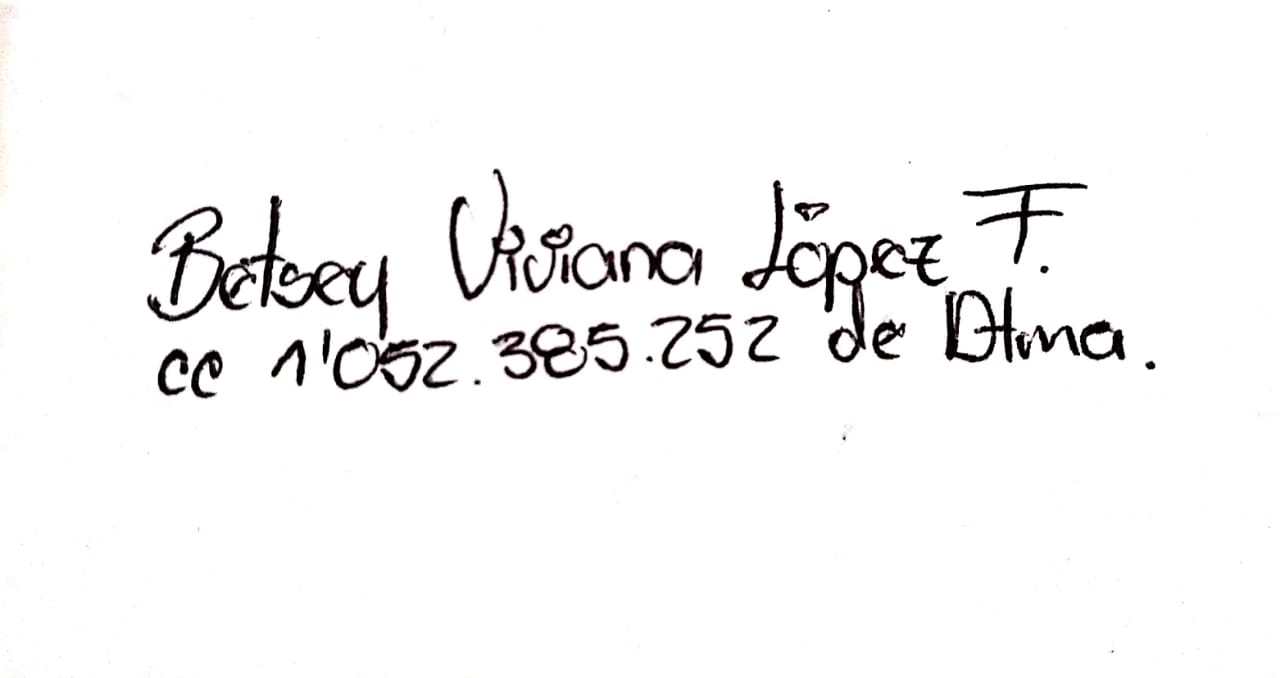 Betsey Viviana López F.
cc 1'052.385.252 de Dtma.